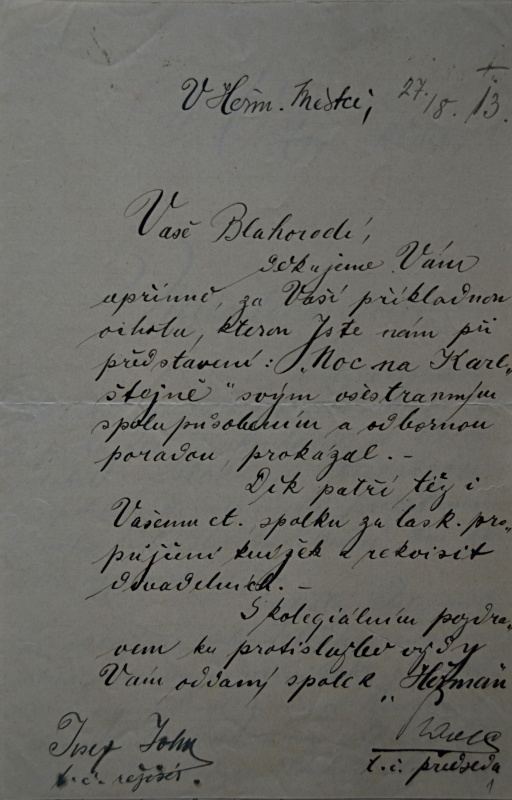 V Heřm. Městci, 27./8. 13.
Vaše Blahorodí,
děkujeme Vám
upřímně, za Vaší příkladnou
ochotu, kterou Jste nám při
představení: „Noc na Karl„
štejně“ svým všestranným
spolupůsobením a odbornou
poradou, prokázal. –
Dík patří též i
Vašemu ct. spolku za lask. pro„
půjčení knížek a rekvisit
divadelních. –
S kolegiálním pozdra„
vem ku protislužbě vždy
Vám oddaný spolek „Heřman
Josef John
t. č. režisér.
t. č. předseda
1